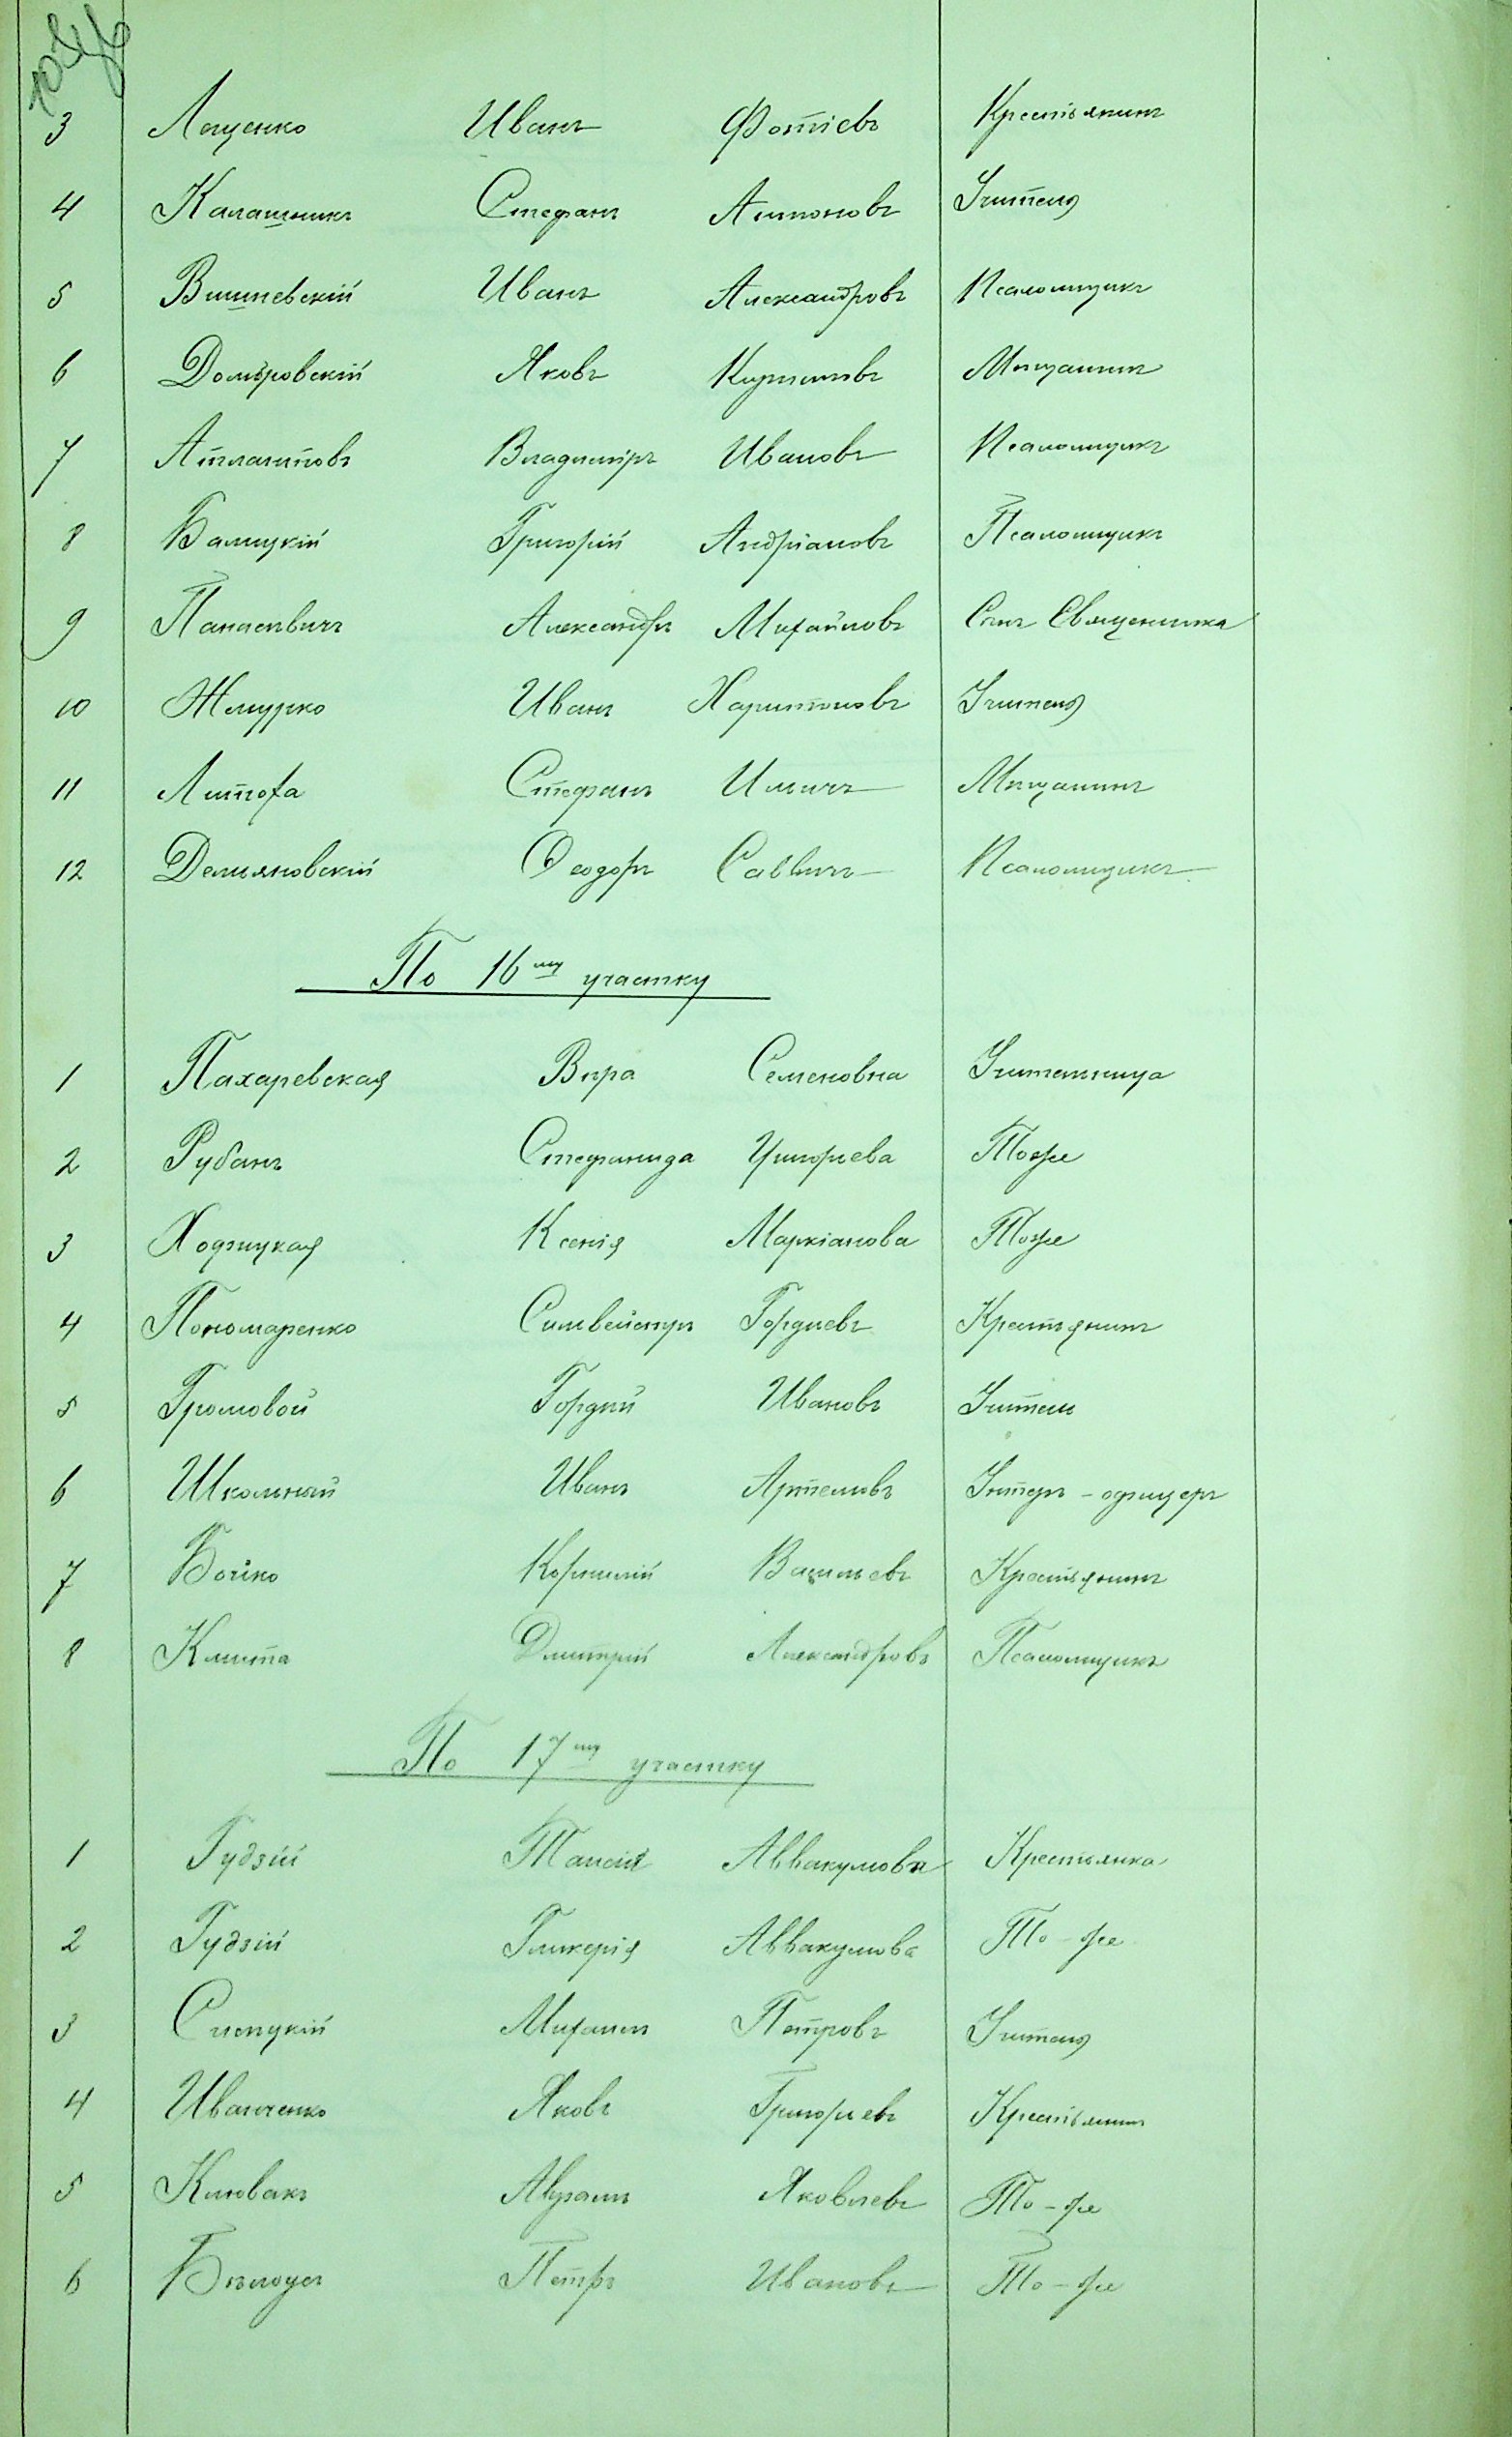 3 Лоценко Иванъ Фотіевъ Крестьянинъ
4 Калашникъ Стефанъ Антоновъ Учитель
5 Вишневскій Иванъ Александровъ Псаломщикъ
6 Домбровскій Яковъ Мѣщанинъ
7 Атлантовъ Владиміръ Ивановъ Псаломщикъ
8 Балицкій Григорій Андріановъ Псаломщикъ
9 Александръ Михайловъ Сынъ Священника
10 Жемурко Иванъ Харитоновъ Учитель
11 Литоха Стефанъ Ильичъ Мѣщанинъ
12 Демяновскій Ѳеодоръ Саввичъ Псаломщикъ
По 16му участку
1 Пахаревская Вѣра Семеновна Учительница
2 Рубанъ Стефанида Григорьева Тоже
3 Ходзицкая Ксенія Маркіанова Тоже
4 Пономаренко Сильвестръ Гордіевъ Крестьянинъ
5 Громовой Гордій Ивановъ Учитель
6 Школьный Иванъ Артемовъ Унтеръ-офицеръ
7 Бойко Корнилій Васильевъ Крестьянинъ
8 Клита Дмитрій Александровъ Псаломщикъ
По 17му участку
1 Гудзій Таисія Аввакумова Крестьянка
2 Гудзій Гликерія Аввакумова То-же
3 Слепцкій Михаилъ Петровъ Учитель
4 Иванченко Яковъ Григорьевъ Крестьянинъ
5 Клювакъ Аврамъ Яковлевъ То-же
6 Бѣлоусъ Петръ Ивановъ То-же